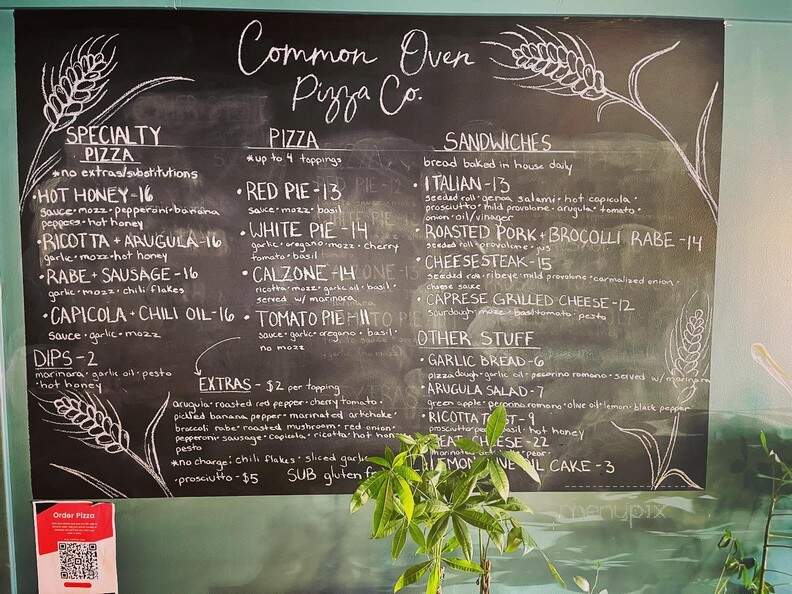 Common Oven
Pizza Co.
SPECIALTY
PIZZA
*no extras/substitutions
•HOT HONEY-16
sauce•mozz•pepperoni•banana
peppers•hot honey
•RICOTTA + ARUGULA-16
garlic•mozz•hot honey
•RABE + SAUSAGE-16
garlic•mozz•chili flakes
•CAPICOLA + CHILI OIL-16
sauce•garlic•mozz
DIPS-2
marinara•garlic oil•pesto
•hot honey
PIZZA
*up to 4 toppings
•RED PIE-13
sauce•mozz•basil
•WHITE PIE-14
garlic•oregano•mozz•cherry
tomato•basil
•CALZONE-14
ricotta•mozz•garlic oil•basil•
served w/ marinara
•TOMATO PIE-11
sauce•garlic•oregano•basil•
no mozz
EXTRAS - $2 per topping
arugula•roasted red pepper•cherry tomato•
pickled banana pepper•marinated artichoke•
broccoli rabe•roasted mushroom•red onion•
pepperoni•sausage•capicola•ricotta•hot
pesto
*no charge: chili flakes•sliced garlic
•prosciutto-$5 SUB gluten
SANDWICHES
bread baked in house daily
•ITALIAN-13
seeded roll•genoa salami•hot capicola•
prosciutto•mild provolone•arugula•tomato•
onion•oil/vinager
•ROASTED PORK + BROCOLLI RABE-14
seeded roll•provolone•jus
•CHEESESTEAK-15
seeded roll•ribeye•mild provolone•carmalized onion•
cheese sauce
•CAPRESE GRILLED CHEESE-12
sourdough•mozz•basil•tomato•pesto
OTHER STUFF
•GARLIC BREAD-6
pizza dough•garlic oil•pecorino romano•served w/ marinara
•ARUGULA SALAD-7
green apple•pecorino romano•olive oil•lemon•black pepper
•RICOTTA
prosciutto basil•hot honey
CHEESE-22
marinated pear
CAKE-3
Order Pizza
menupix